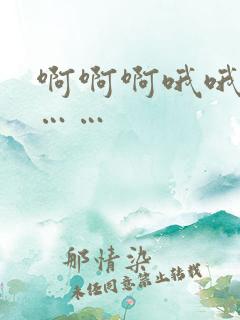 啊啊啊哦哦
... ...
邮情染
未经同意禁止转载